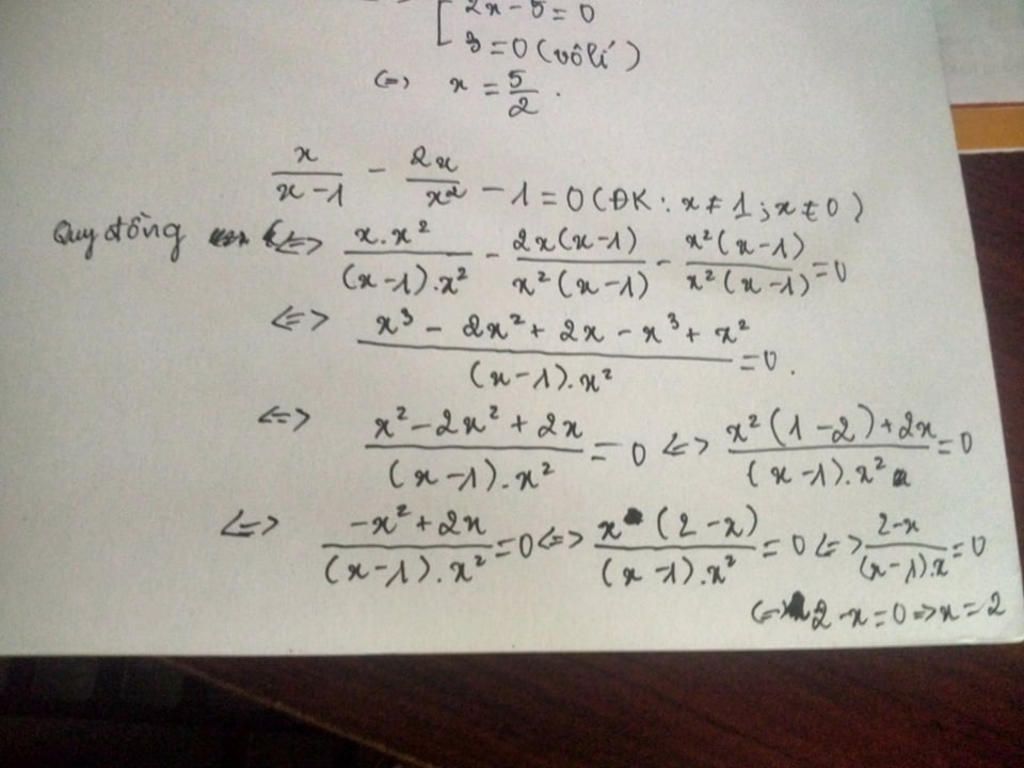 2x - 5 = 0
3 = 0 (vô lí)
<=> x = 5/2 .
x/(x-1) - 2x/x² - 1 = 0 (ĐK: x ≠ 1 ; x ≠ 0)
Quy đồng <=> x.x²/((x-1).x²) - 2x(x-1)/(x²(x-1)) - x²(x-1)/(x²(x-1)) = 0
<=> (x³ - 2x² + 2x - x³ + x²)/((x-1).x²) = 0.
<=> (x² - 2x² + 2x)/((x-1).x²) = 0 <=> (x²(1-2) + 2x)/((x-1).x²) = 0
<=> (-x² + 2x)/((x-1).x²) = 0 <=> x(2-x)/((x-1).x²) = 0 <=> (2-x)/((x-1).x) = 0
<=> 2 - x = 0 => x = 2